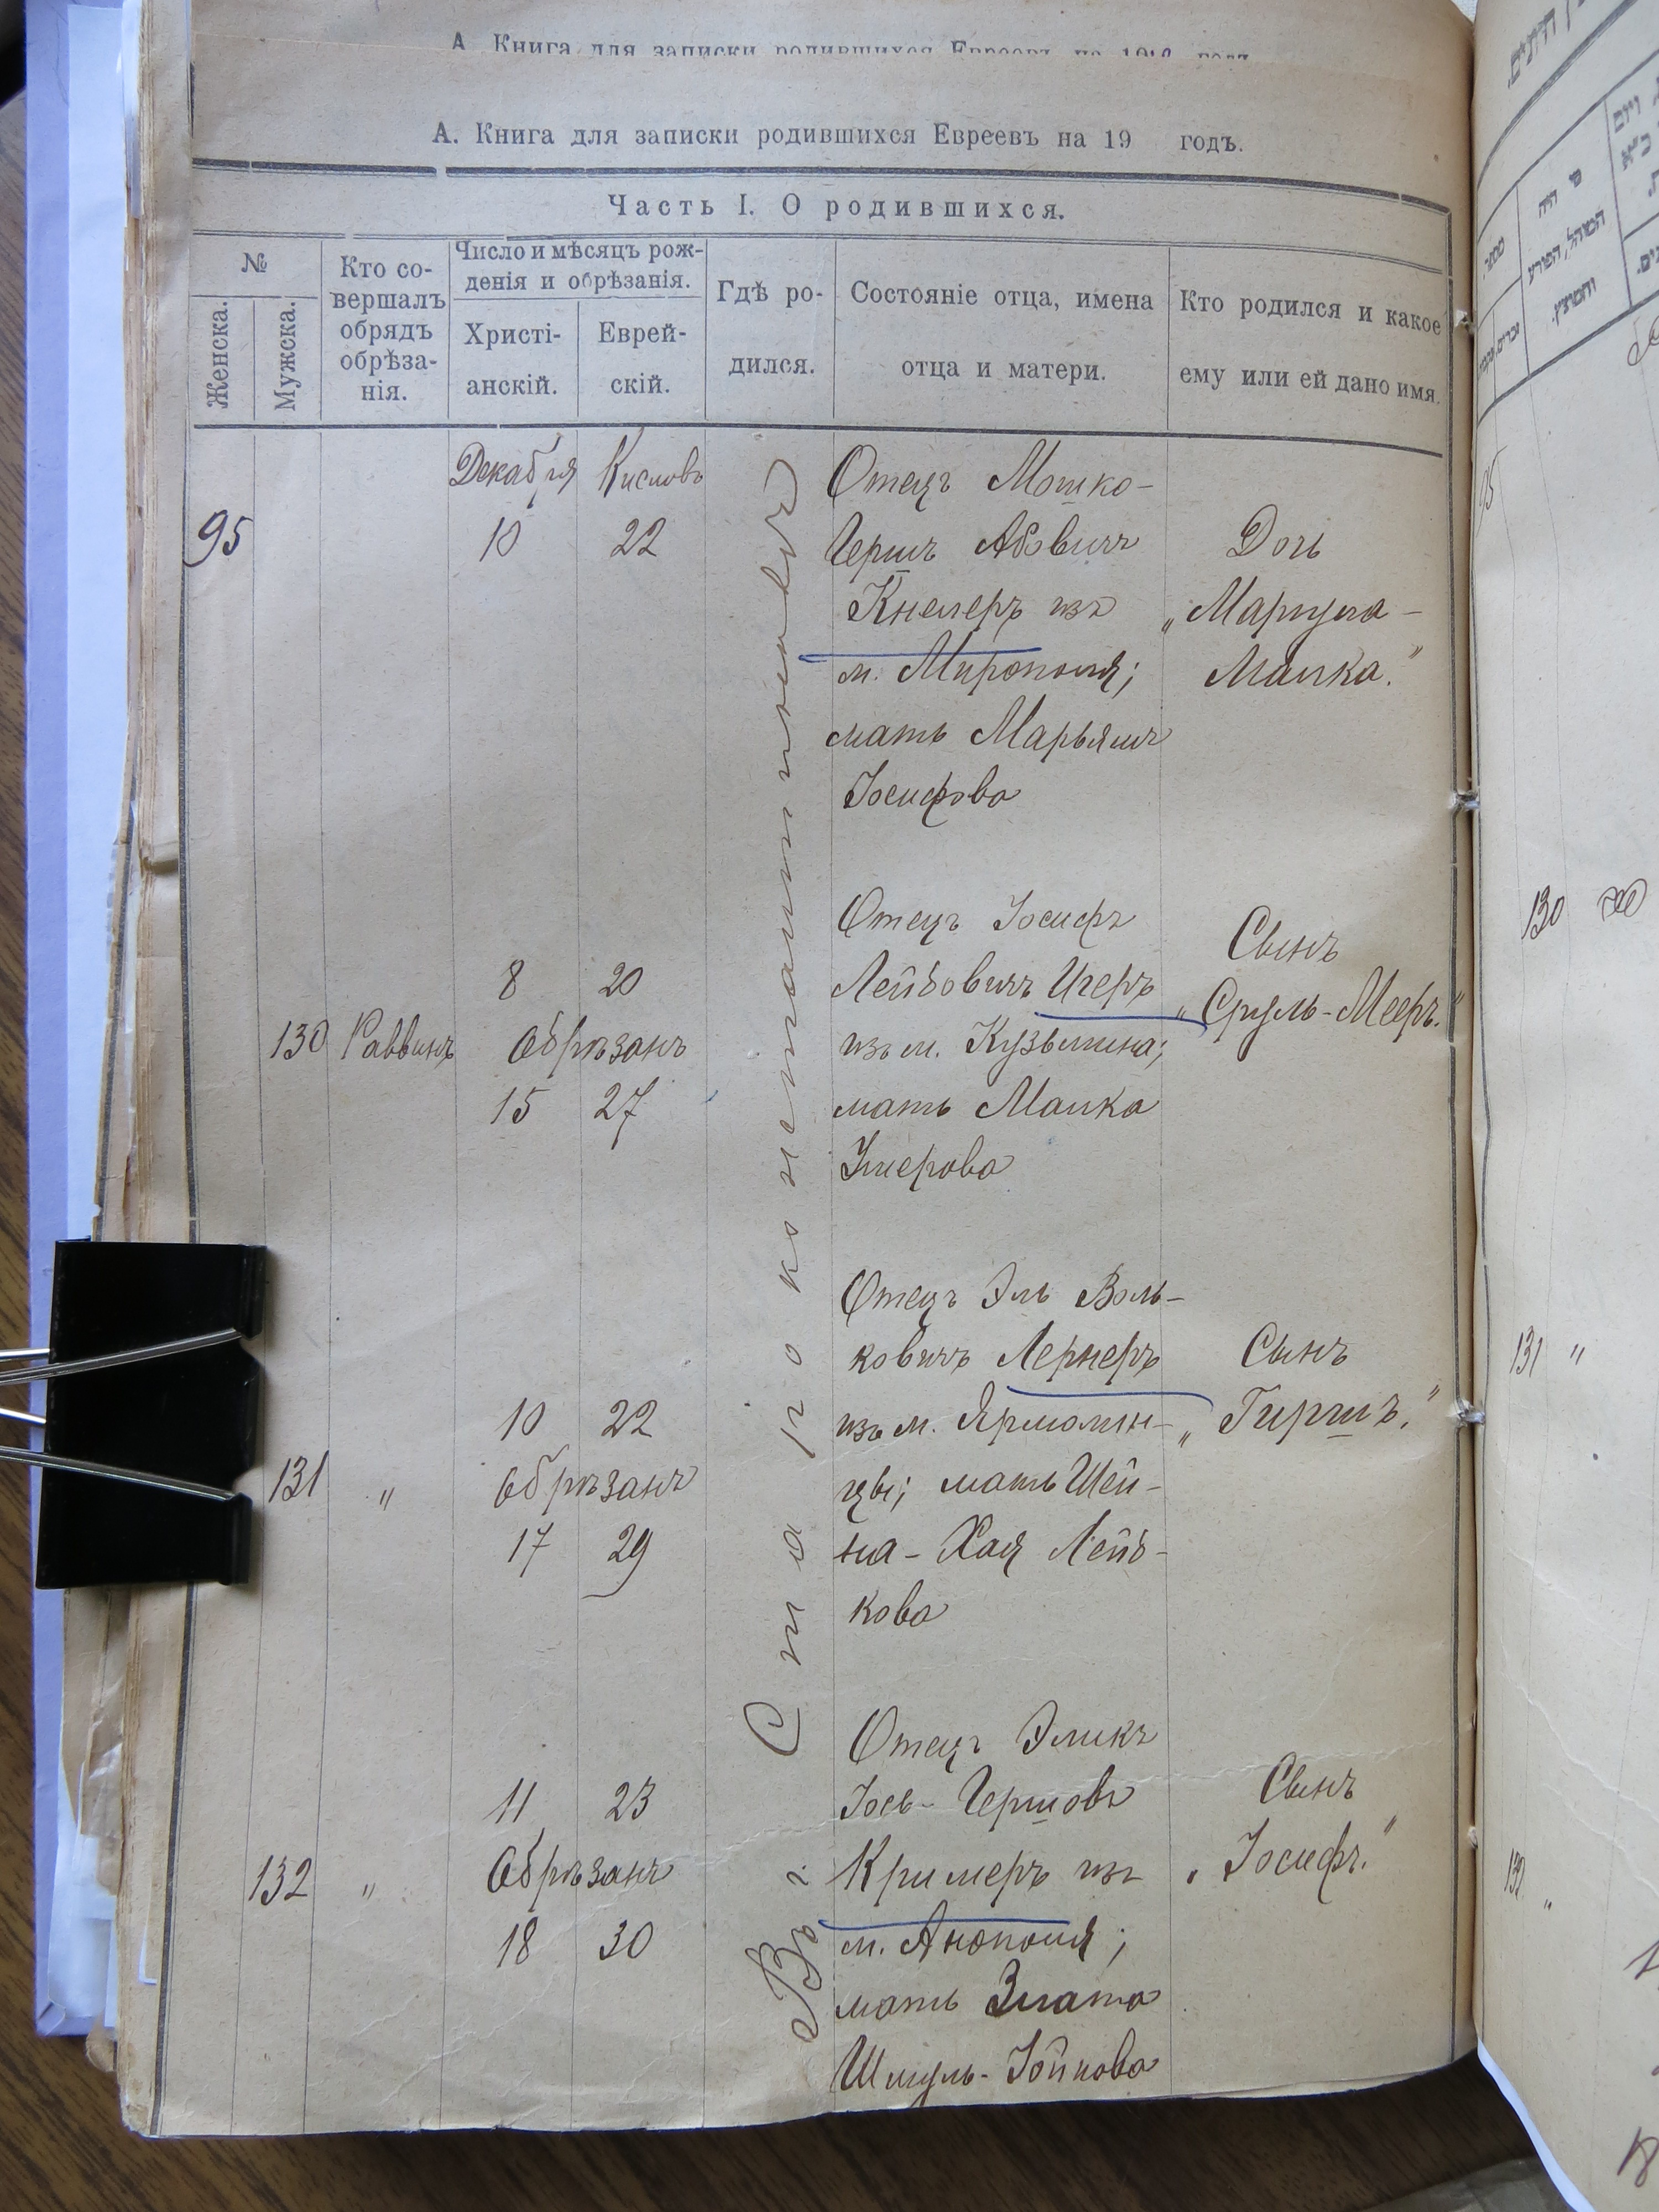 А. Книга для записки родившихся Евреевъ на 191 годъ
А. Книга для записки родившихся Евреевъ на 19 годъ.
Часть I. О родившихся.
№
Женска.
Мужска.
Кто со-
вершалъ
обрядъ
обрѣза-
нія.
Число и мѣсяцъ рож-
денія и обрѣзанія.
Христі-
анскій.
Еврей-
скій.
Гдѣ ро-
дился.
Состояніе отца, имена
отца и матери.
Кто родился и какое
ему или ей дано имя.
Въ г. Староконстантиновѣ
Декабря Кислевъ
95 10 22
Отецъ Мошко-
Гершъ Абовичъ
Кнелеръ изъ
м. Мирополя;
мать Марьямъ
Іосифова
Дочь
„Маргуля-
Малка."
8 20
130 Раввинъ Обрѣзанъ
15 27
Отецъ Іосифъ
Лейбовичъ Игеръ
изъ м. Кузьмина;
мать Малка
Умерова
Сынъ
„Сруль-Мееръ."
10 22
131 " Обрѣзанъ
17 29
Отецъ Эль Воль-
ковичъ Лернеръ
изъ м. Ярмолин-
цы; мать Шей-
на-Хая Лейб-
кова
Сынъ
„Гиршъ."
11 23
132 " Обрѣзанъ
18 30
Отецъ Эликъ
Іось-Гершовъ
Кримеръ изъ
м. Аннополя;
мать Злата
Шмуль-Іойнова
Сынъ
„Іосифъ."
130
131 "
132 "